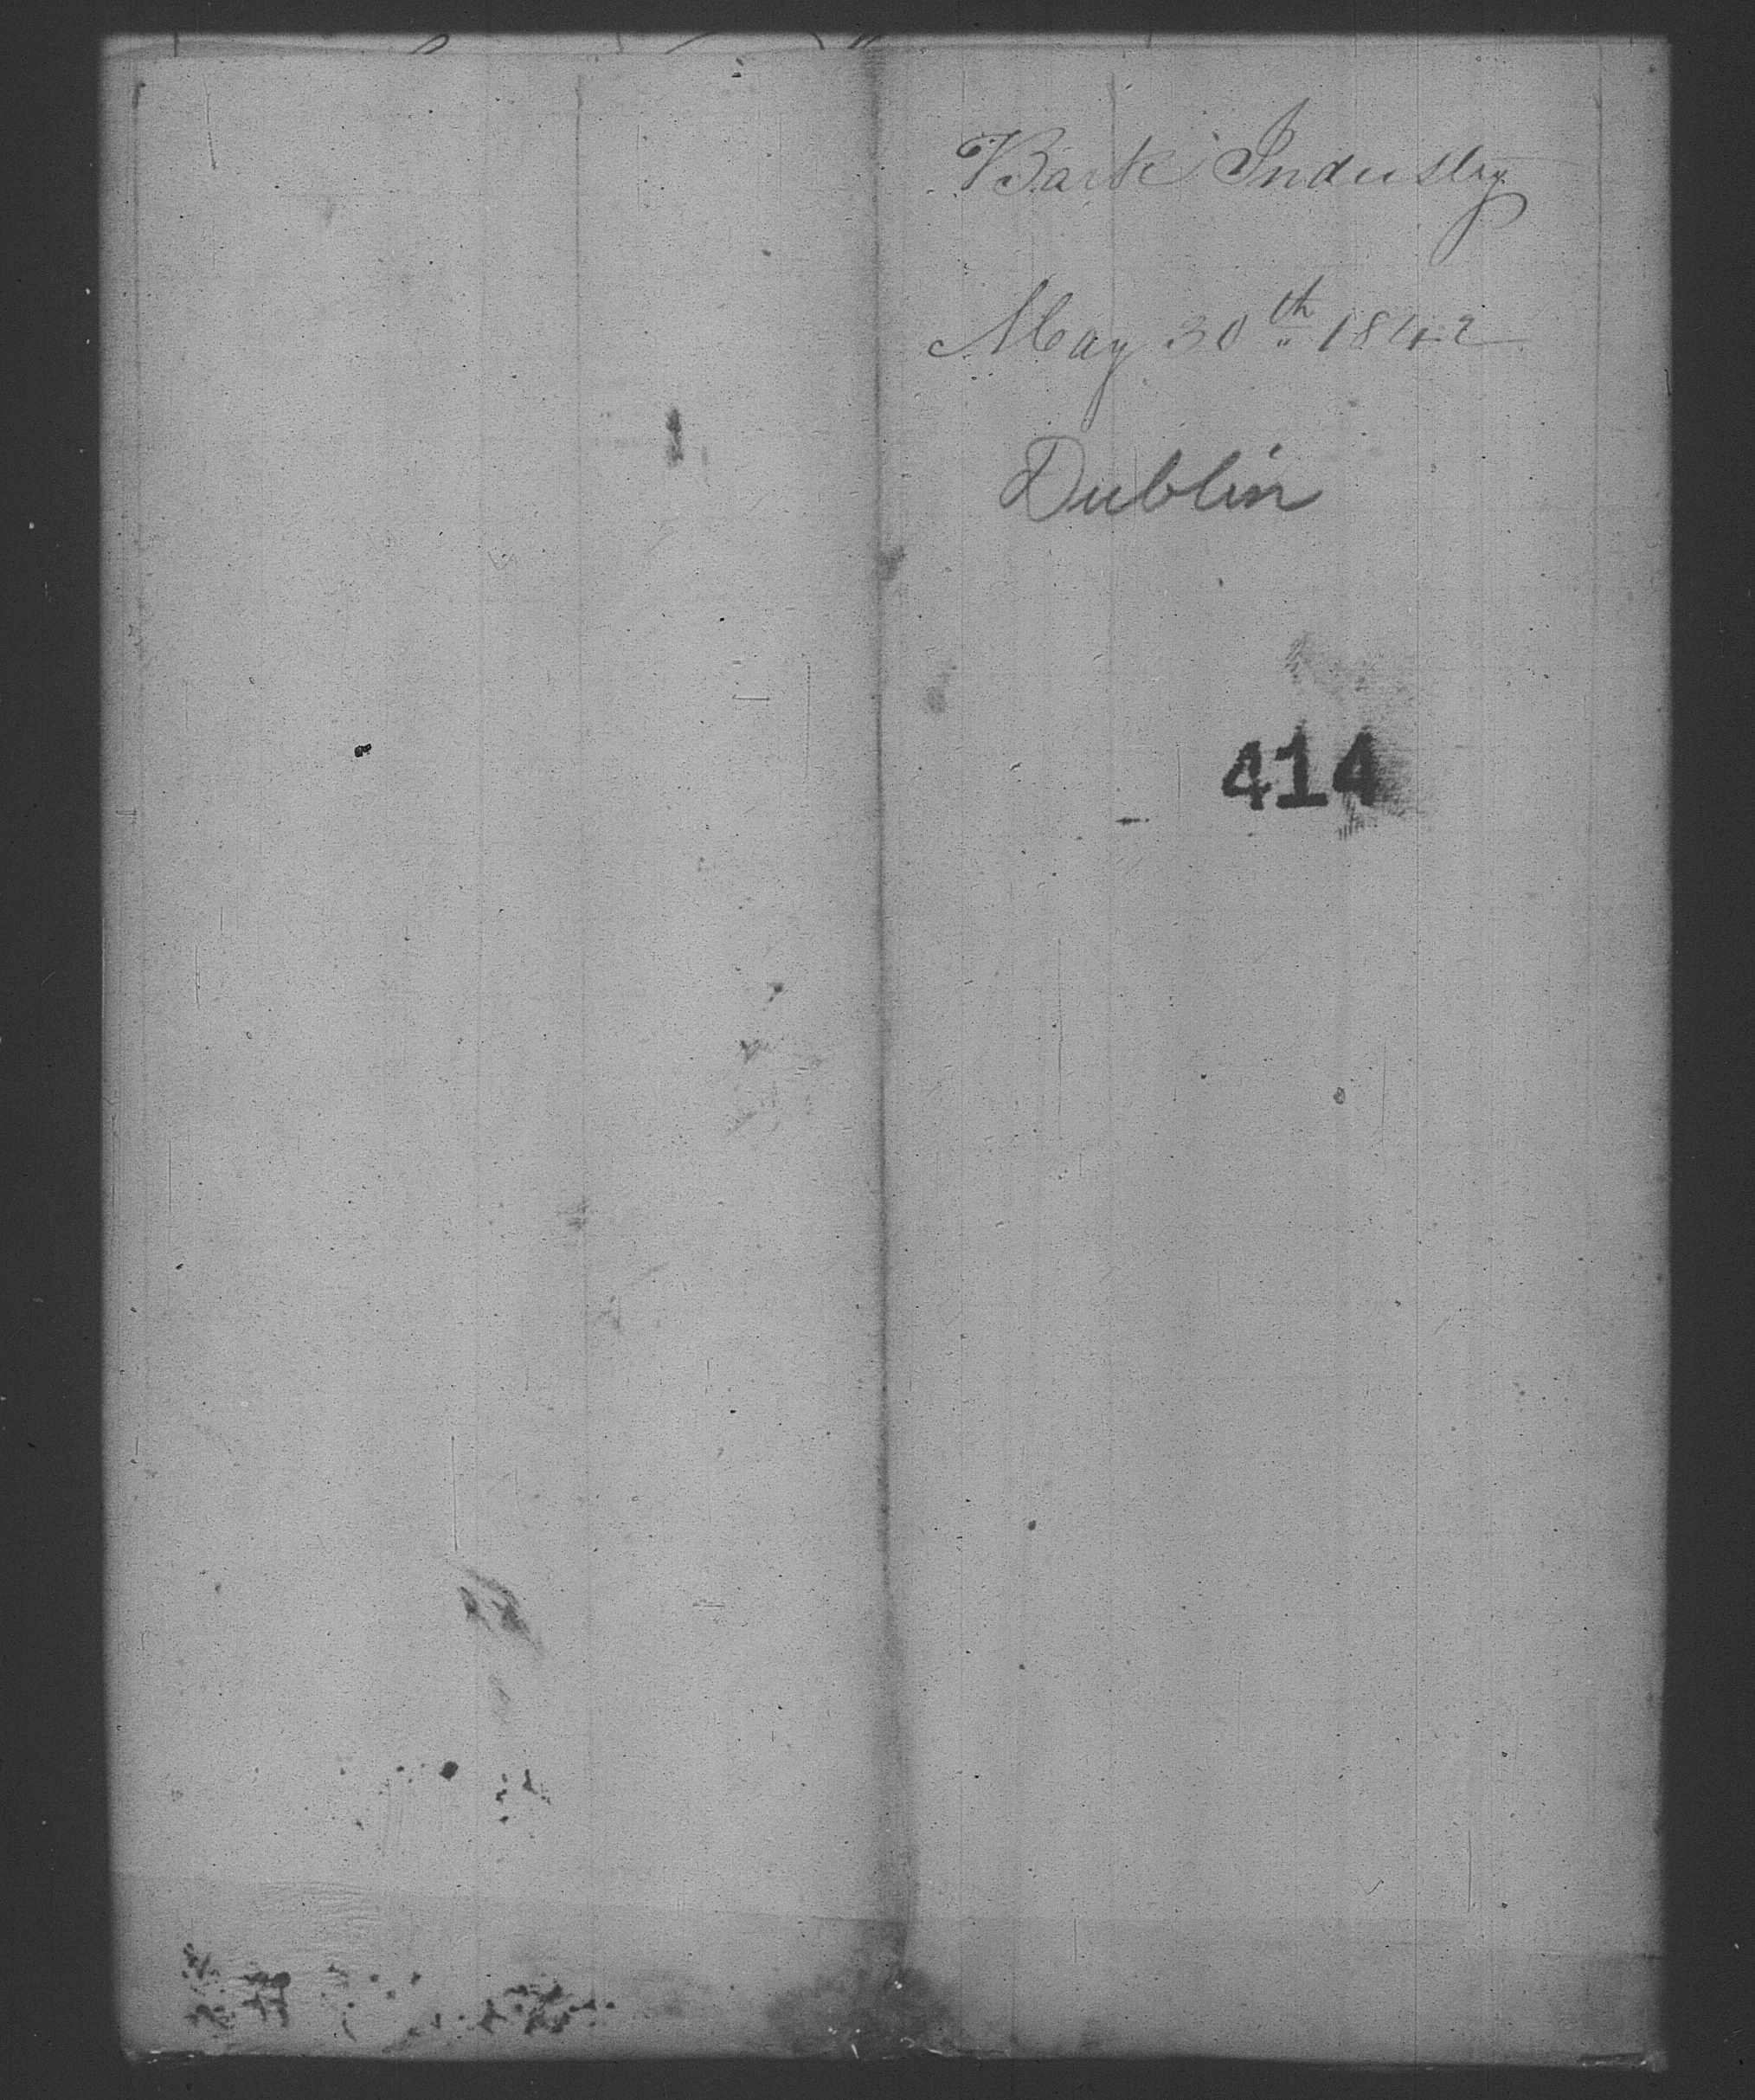 Bark Industry
May 30th 1842
Dublin
414